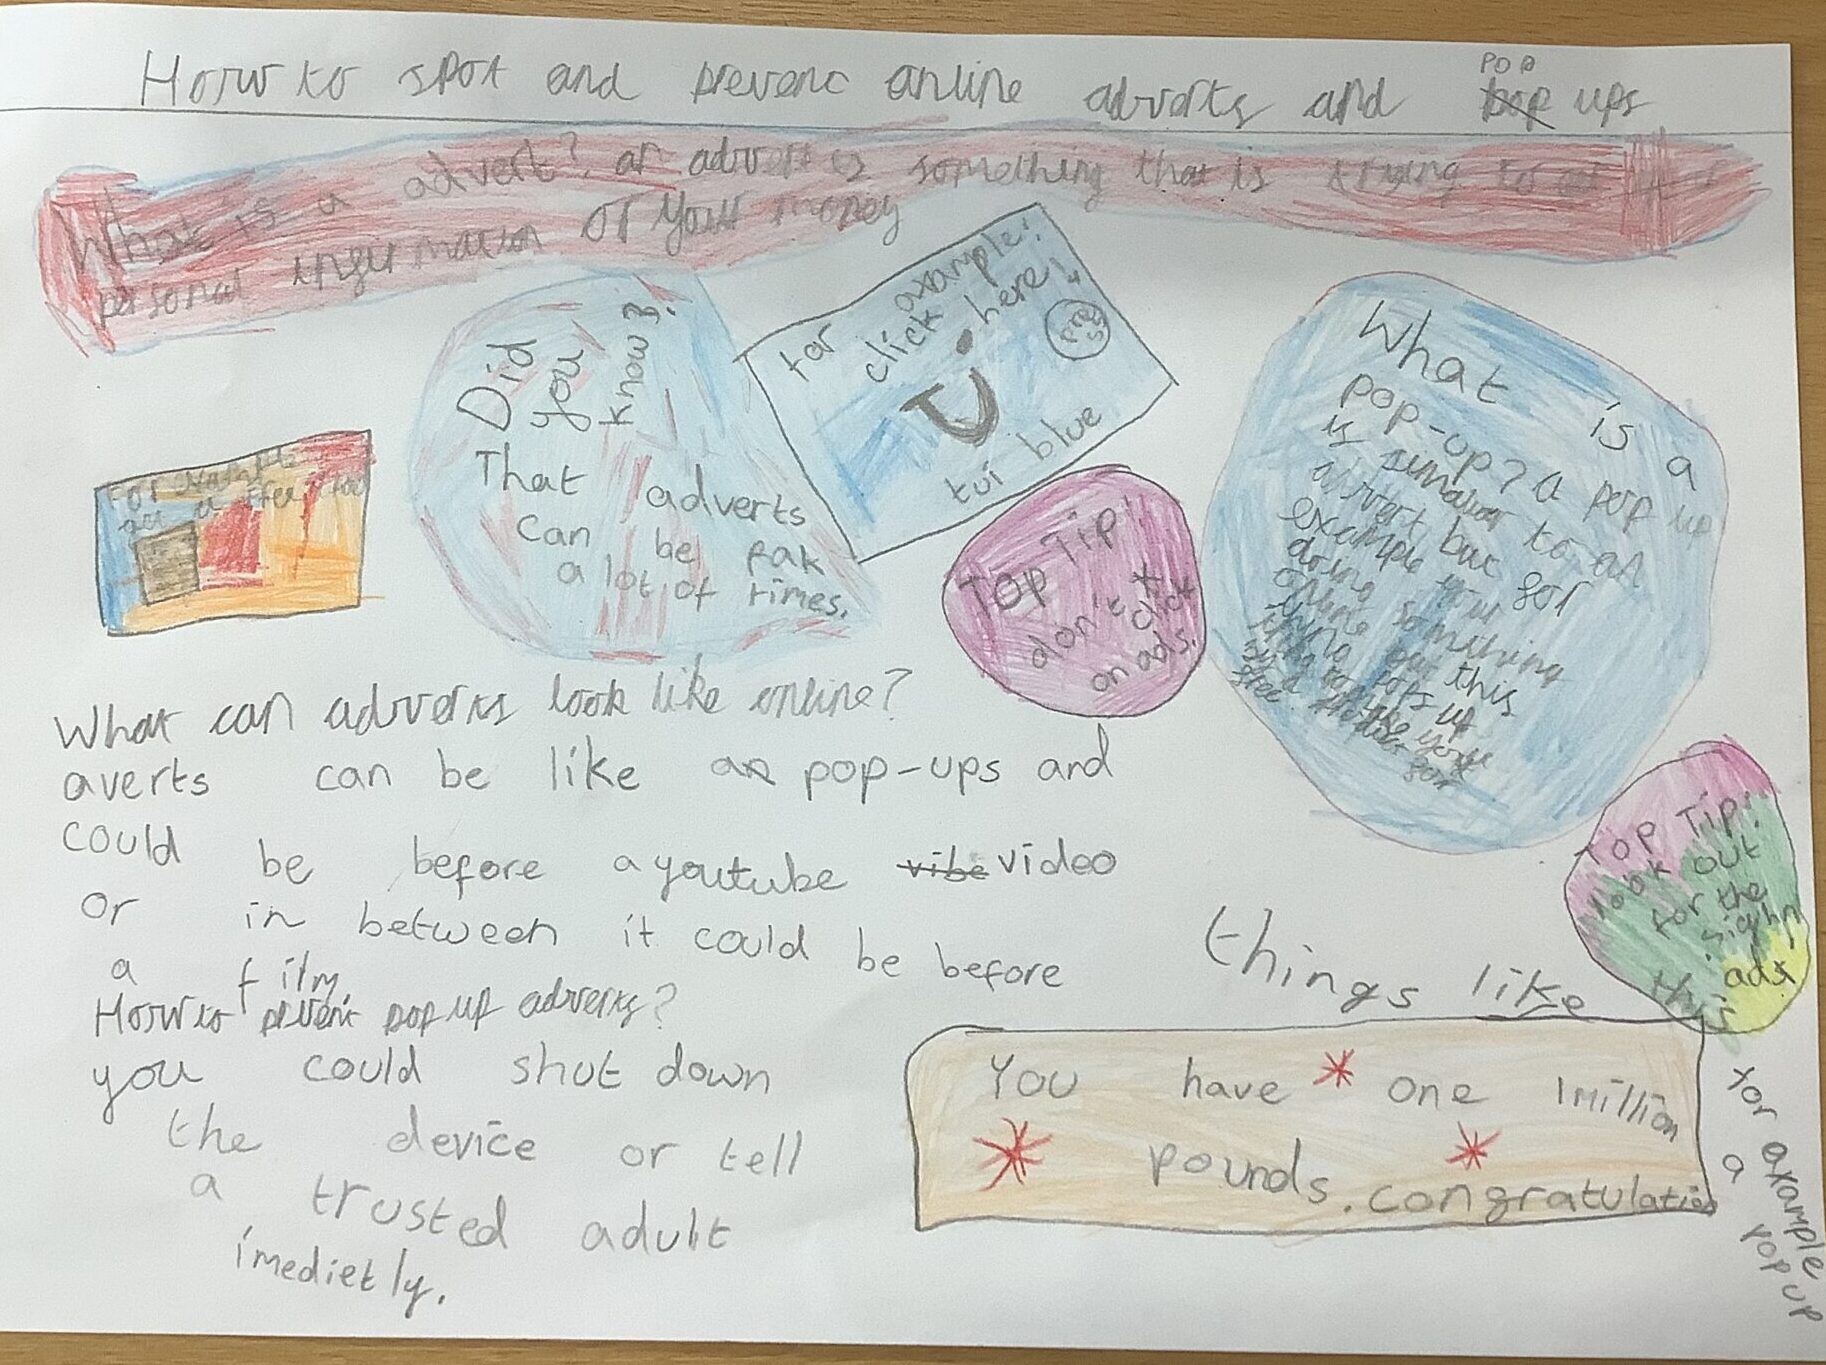 How to spot and prevent online adverts and pop ups
pop
What is a advert? an advert is something that is trying to
personal information or your money
for example:
click here!
press
tui blue
Did you know?
That adverts
can be fak
a lot of times.
For example
get a free
Top Tip!
don't click
on ads.
What is a
pop-up? a pop up
is similar to an
advert but for
example your
doing something
online and this
thing pops up
What can adverts look like online?
averts can be like pop-ups and
could be before a youtube vibe video
or in between it could be before
a film.
How to prevent pop up adverts?
you could shut down
the device or tell
a trusted adult
imedietly.
Top Tip:
look out
for the
sighn
ads
this
things like
You have one 1million
pounds. congratulation
for example
a pop up